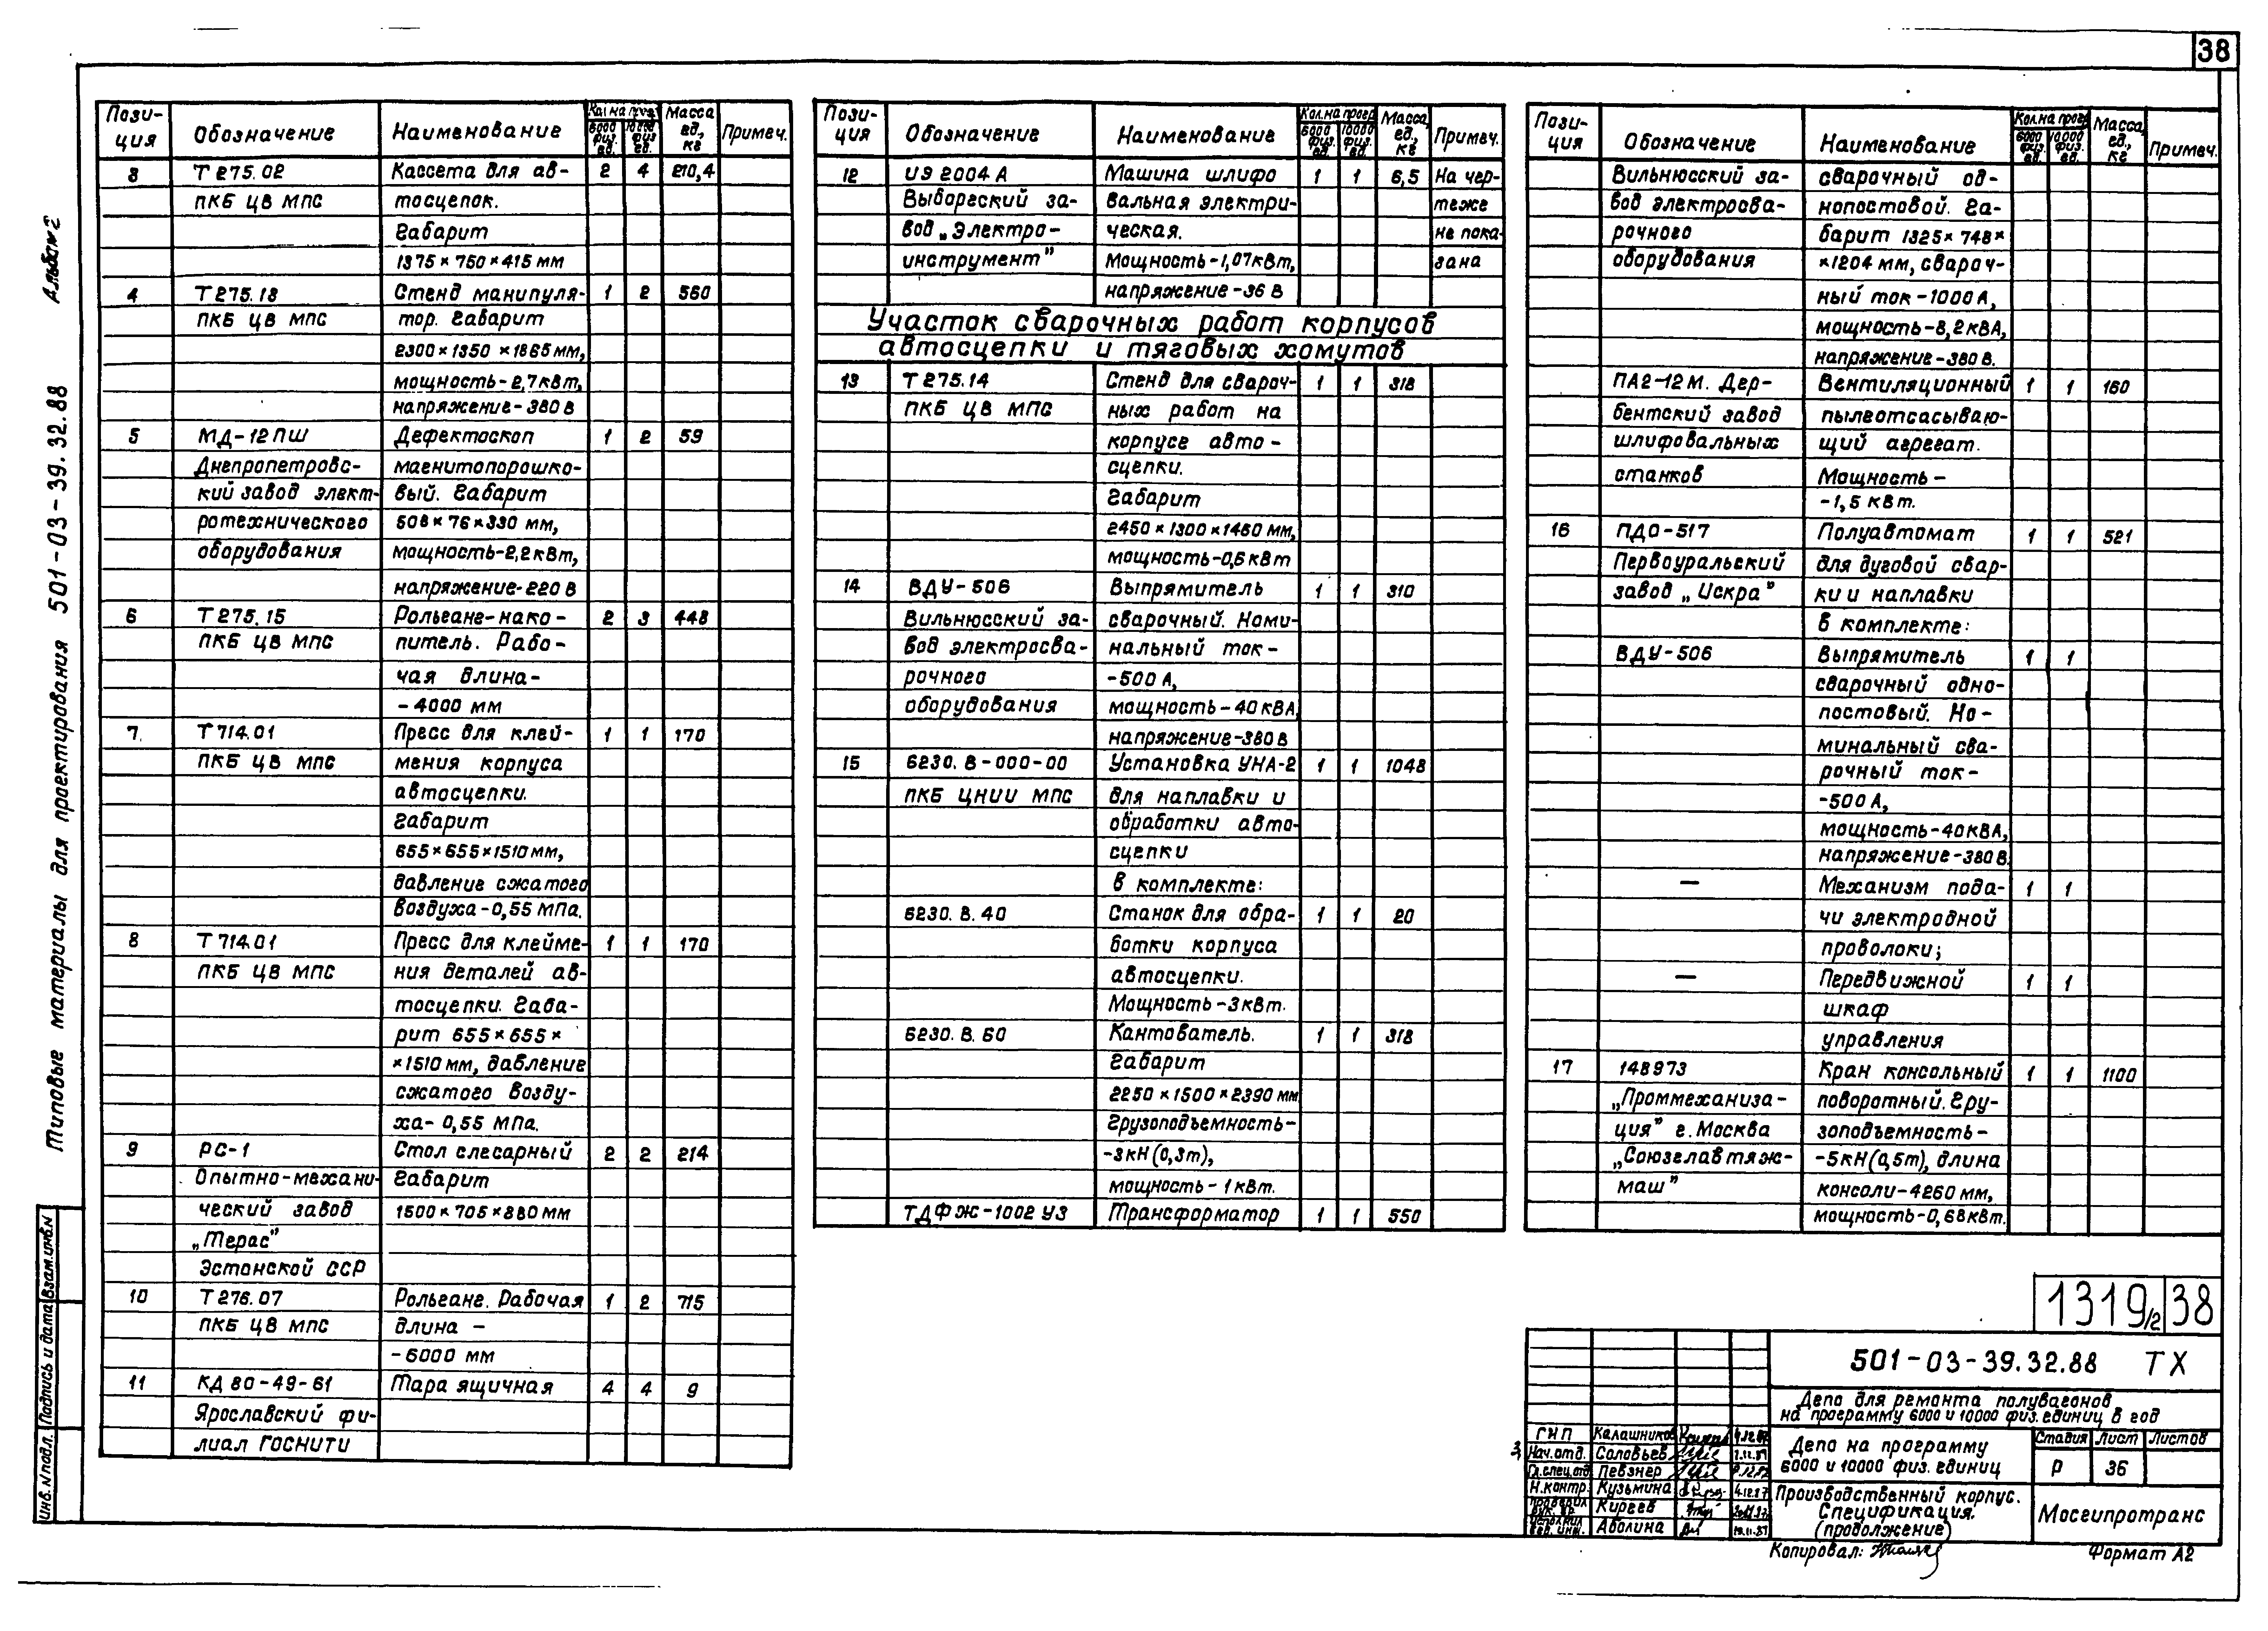 38
Альбом 2
Типовые материалы для проектирования 501-03-39.32.88
Взам.инв.N
Подпись и дата
Инв.N подл.
Пози-ция Обозначение Наименование Кол.на прогр. 6000 физ. ед. 10000 физ. ед. Масса ед., кг Примеч.
3 Т 275.02 Кассета для ав- 2 4 210,4
ПКБ ЦВ МПС тосцепок.
Габарит
1375×750×415 мм
4 Т 275.13 Стенд манипуля- 1 2 560
ПКБ ЦВ МПС тор. Габарит
2300×1350×1865 мм,
мощность-2,7кВт,
напряжение-380 В
5 МД-12ПШ Дефектоскоп 1 2 59
Днепропетровс- магнитопорошко-
кий завод элект- вый. Габарит
ротехнического 508×76×330 мм,
оборудования мощность-2,2кВт,
напряжение-220 В
6 Т 275.15 Рольганг-нако- 2 3 448
ПКБ ЦВ МПС питель. Рабо-
чая длина-
-4000 мм
7. Т 714.01 Пресс для клей- 1 1 170
ПКБ ЦВ МПС мения корпуса
автосцепки.
Габарит
655×655×1510 мм,
давление сжатого
воздуха-0,55 МПа.
8 Т 714.01 Пресс для клейме- 1 1 170
ПКБ ЦВ МПС ния деталей ав-
тосцепки. Габа-
рит 655×655×
×1510 мм, давление
сжатого возду-
ха-0,55 МПа.
9 РС-1 Стол слесарный 2 2 214
Опытно-механи- Габарит
ческий завод 1500×705×880 мм
„Терас"
Эстонской ССР
10 Т 276.07 Рольганг. Рабочая 1 2 715
ПКБ ЦВ МПС длина -
-6000 мм
11 КД 80-49-61 Тара ящичная 4 4 9
Ярославский фи-
лиал ГОСНИТИ
Пози-ция Обозначение Наименование Кол.на прогр. 6000 физ. ед. 10000 физ. ед. Масса ед., кг Примеч.
12 ИЭ 2004 А Машина шлифо 1 1 6,5 На чер-
Выборгский за- вальная электри- теже
вод „Электро- ческая. не пока-
инструмент" Мощность-1,07кВт, зана
напряжение-36 В
Участок сварочных работ корпусов
автосцепки и тяговых хомутов
13 Т 275.14 Стенд для свароч- 1 1 318
ПКБ ЦВ МПС ных работ на
корпусе авто-
сцепки.
Габарит
2450×1300×1460 мм,
мощность-0,6кВт
14 ВДУ-506 Выпрямитель 1 1 310
Вильнюсский за- сварочный. Номи-
вод электросва- нальный ток-
рочного -500 А,
оборудования мощность-40кВА,
напряжение-380 В
15 6230.В-000-00 Установка УНА-2 1 1 1048
ПКБ ЦНИИ МПС для наплавки и
обработки авто-
сцепки
в комплекте:
6230.В.40 Станок для обра- 1 1 20
ботки корпуса
автосцепки.
Мощность-3кВт.
6230.В.60 Кантователь. 1 1 318
Габарит
2250×1500×2390 мм
Грузоподъемность-
-3кН(0,3т),
мощность-1кВт.
ТДФЖ-1002 У3 Трансформатор 1 1 550
Пози-ция Обозначение Наименование Кол.на прогр. 6000 физ. ед. 10000 физ. ед. Масса ед., кг Примеч.
Вильнюсский за- сварочный од-
вод электросва- нопостовой. Га-
рочного барит 1325×748×
оборудования ×1204 мм, свароч-
ный ток-1000 А,
мощность-8,2кВА,
напряжение-380 В.
ПА2-12М. Дер- Вентиляционный 1 1 160
бентский завод пылеотсасываю-
шлифовальных щий агрегат.
станков Мощность-
-1,5 кВт.
16 ПДО-517 Полуавтомат 1 1 521
Первоуральский для дуговой свар-
завод „Искра" ки и наплавки
в комплекте:
ВДУ-506 Выпрямитель 1 1
сварочный одно-
постовый. Но-
минальный сва-
рочный ток-
-500 А,
мощность-40кВА,
напряжение-380 В.
— Механизм пода- 1 1
чи электродной
проволоки;
— Передвижной 1 1
шкаф
управления
17 148973 Кран консольный 1 1 1100
„Проммеханиза- поворотный. Гру-
ция" г. Москва зоподъемность-
„Союзглавтяж- -5кН(0,5т), длина
маш" консоли-4260 мм,
мощность-0,68кВт.
1319/2 38
501-03-39.32.88 ТХ
Депо для ремонта полувагонов
на программу 6000 и 10000 физ. единиц в год
ГИП Калашников
Нач.отд. Соловьев
Гл.спец.отд Певзнер
Н.контр. Кузьмина 4.12.87
Проверил рук. гр. Киреев
Исполнил вед. инж. Аболина
Депо на программу
6000 и 10000 физ. единиц
Стадия Лист Листов
Р 36
Производственный корпус.
Спецификация.
(продолжение)
Мосгипротранс
Копировал:
Формат А2